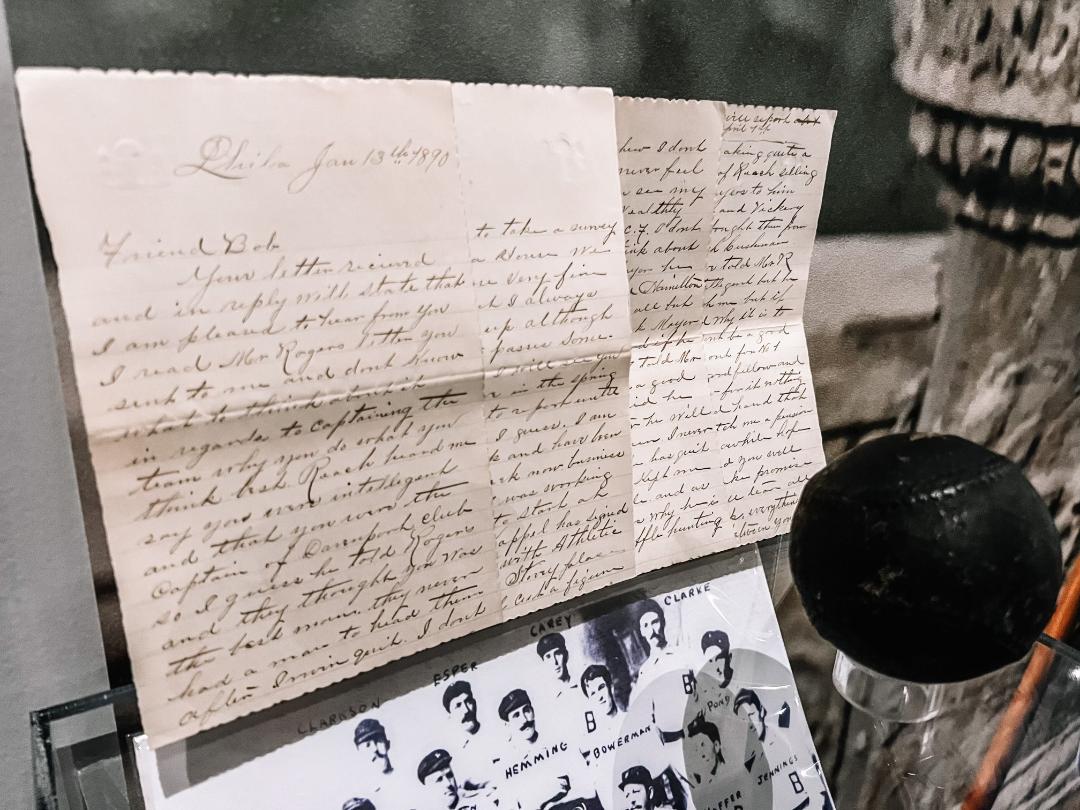 Phila Jan 13th 1890
Friend Bob
Your letter recierd
and in reply will state that
I am pleased to hear from you
I read Mr Rogers letter you
sent to me and dont know
what to think about it
in regards to captaining the
team why you do what you
think best Reach heard me
say you were intelligent
and that you were the
Captain of Davenport club
so I guess he told Rogers
and they thought you was
the best man. they never
had a man to head them
after Irwin quit. I dont
to take a survey
a House We
ne very fine
I always
up although
passes some.
I will see you
in the spring
to report until
I guess. I am
k and have been
rk now business
was working
to start an
appel has signed
with Athletic
Story place
such a figure
how I dont
never feel
see my
Wealthy
C.F. I dont
ink about
you he
Hamilton
all but
Mayer
if he
told Mr
a good
id he
he will
I never
has quit
Kept me
and as
why he is
ffle hunting
will report
pril 1st
aking quite a
of Reach selling
ayers to him
and Vickery
ought them from
Cushman
r told Mr R
good but he
h me but if
Why it is to
be a good
ont for No 1
good fellow and
for it nothing
d hand that
tch me a pension
awhile hope
d you will
the promise
team all
everything
etween you
CLARKE
CAREY
ESPER
CLARKSON
HEMMING
BOWERMAN
POND
JENNINGS
B
B
B